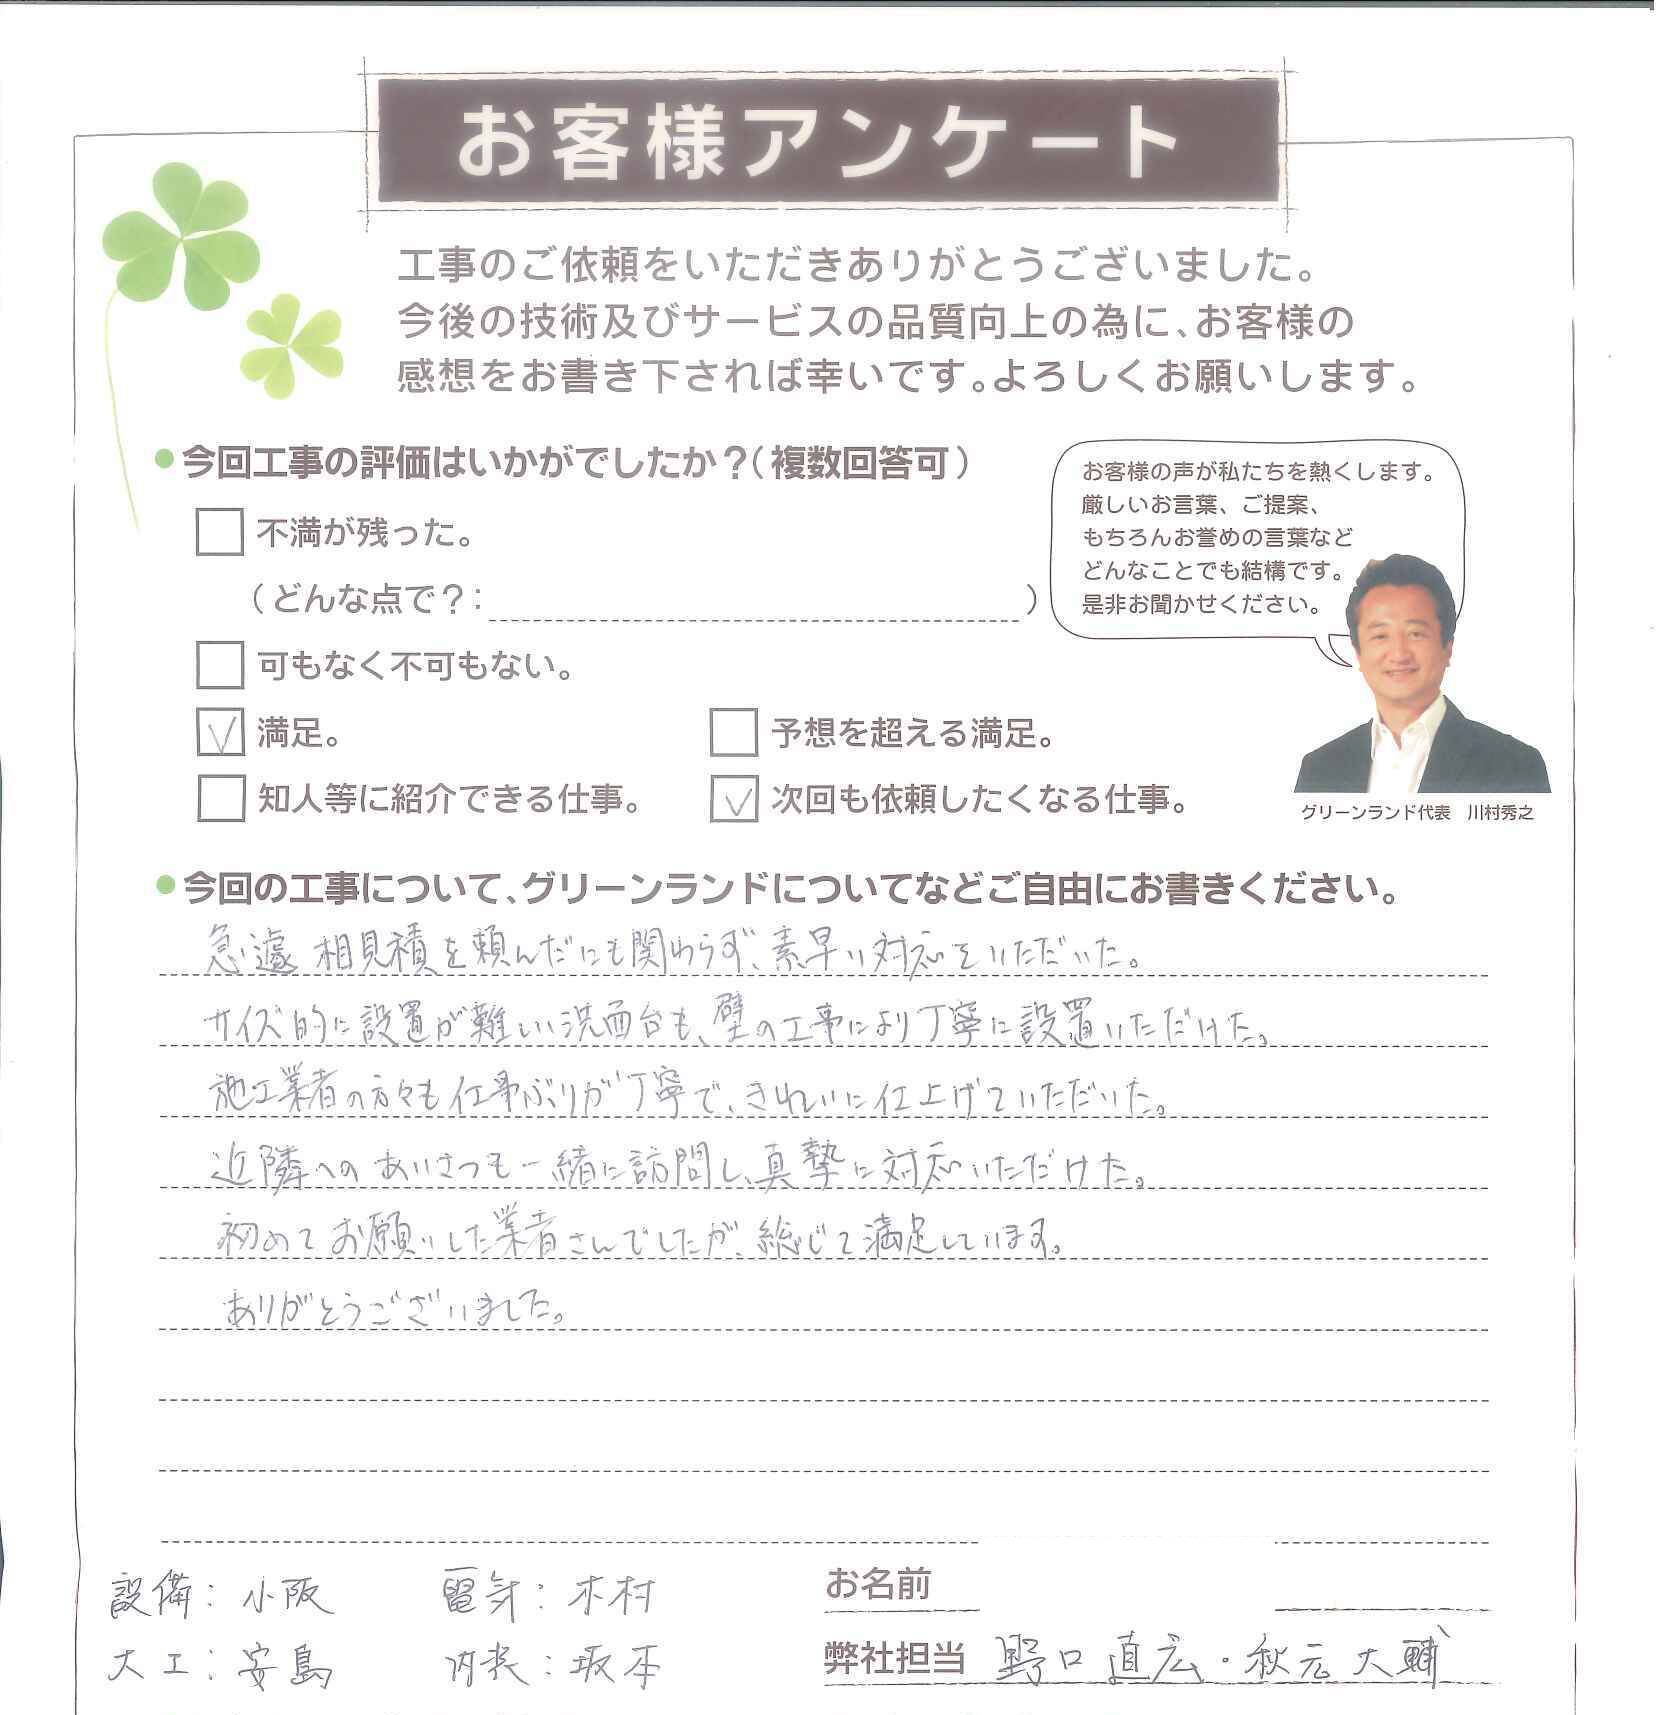 お客様アンケート
工事のご依頼をいただきありがとうございました。
今後の技術及びサービスの品質向上の為に、お客様の
感想をお書き下されば幸いです。よろしくお願いします。
●今回工事の評価はいかがでしたか？（複数回答可）
不満が残った。
（どんな点で？：　）
可もなく不可もない。
満足。
予想を超える満足。
知人等に紹介できる仕事。
次回も依頼したくなる仕事。
お客様の声が私たちを熱くします。
厳しいお言葉、ご提案、
もちろんお誉めの言葉など
どんなことでも結構です。
是非お聞かせください。
グリーンランド代表　川村秀之
●今回の工事について、グリーンランドについてなどご自由にお書きください。
急遽 相見積を頼んだにも関わらず、素早い対応をいただいた。
サイズ的に設置が難しい洗面台も、壁の工事により丁寧に設置いただけた。
施工業者の方々も仕事ぶりが丁寧で、きれいに仕上げていただいた。
近隣へのあいさつも一緒に訪問し、真摯に対応いただけた。
初めてお願いした業者さんでしたが、総じて満足しています。
ありがとうございました。
設備：小阪
電気：木村
お名前
大工：安島
内装：坂本
弊社担当 野口 直広・秋元 大輔